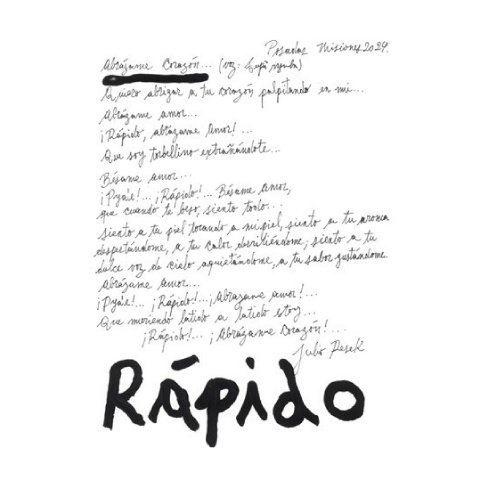 Posadas Misiones 2024.
Abrázame Corazón... (voz:
Quiero abrigar a tu corazón palpitando en mi...
Abrázame amor...
¡Rápido, abrázame Amor!...
Que soy torbellino extrañándote...
Bésame amor...
¡Pya'e!... ¡Rápido!... Bésame Amor,
que cuando te beso, siento todo...
siento a tu piel tocando a mi piel, siento a tu aroma
despertándome, a tu calor derritiéndome, siento a tu
dulce voz de cielo aquietándome, a tu sabor gustándome.
Abrázame amor...
¡Pya'e!... ¡Rápido!... ¡Abrázame amor!...
Que moriendo latido a latido estoy...
¡Rápido!... ¡Abrázame Corazón!...
Julio Pesek
Rápido